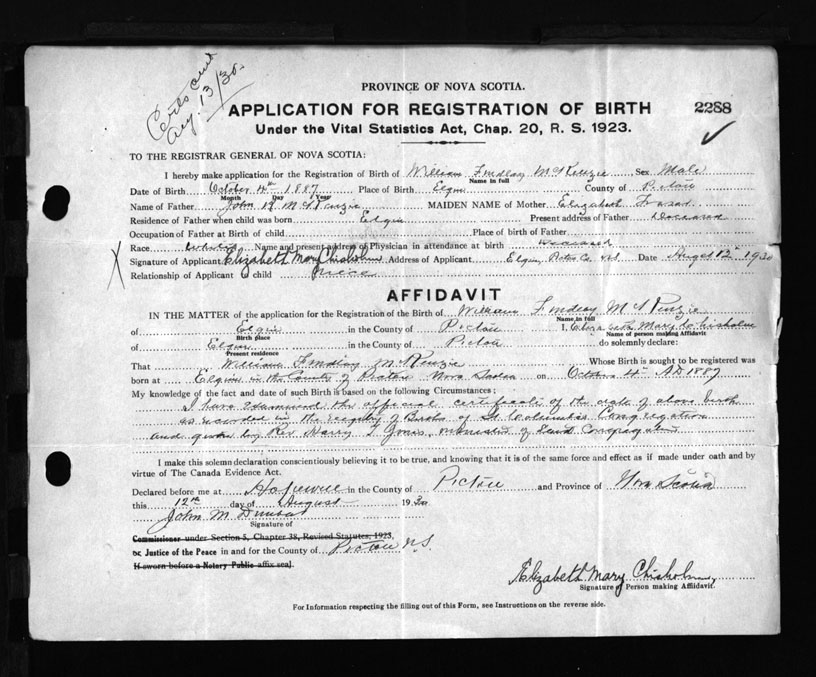 Certs sent
Aug. 13/30.
PROVINCE OF NOVA SCOTIA.
APPLICATION FOR REGISTRATION OF BIRTH 2288
Under the Vital Statistics Act, Chap. 20, R. S. 1923.
TO THE REGISTRAR GENERAL OF NOVA SCOTIA:
I hereby make application for the Registration of Birth of William Findlay McKenzie Sex Male
Name in full
Date of Birth October 4th 1887 Place of Birth Elgin County of Pictou
Month Day Year
Name of Father John McKenzie MAIDEN NAME of Mother Elizabeth
Residence of Father when child was born Elgin Present address of Father Deceased
Occupation of Father at Birth of child Place of birth of Father
Race White Name and present address of Physician in attendance at birth deceased
Signature of Applicant Elizabeth Mary Chisholm Address of Applicant Elgin, Pictou Co. N.S. Date August 12th 1930
Relationship of Applicant to child Niece
AFFIDAVIT
IN THE MATTER of the application for the Registration of the Birth of William Findlay McKenzie
Name in full
of Elgin in the County of Pictou I, Elizabeth Mary Chisholm
Birth place Name of person making Affidavit
of Elgin in the County of Pictou do solemnly declare:
Present residence
That William Findlay McKenzie Whose Birth is sought to be registered was
born at Elgin in the County of Pictou Nova Scotia on October 4th AD 1887
My knowledge of the fact and date of such Birth is based on the following Circumstances:
I have examined the official certificate of the date of above birth
as recorded in the registry of Births of St Columba's Congregation
and given by Rev Harry T Jones, minister of said Congregation
I make this solemn declaration conscientiously believing it to be true, and knowing that it is of the same force and effect as if made under oath and by
virtue of The Canada Evidence Act.
Declared before me at Hopewell in the County of Pictou and Province of Nova Scotia
this 12th day of August 1930
John M Dunbar
Signature of
Commissioner under Section 5, Chapter 38, Revised Statutes, 1923,
or Justice of the Peace in and for the County of Pictou N.S.
If sworn before a Notary Public affix seal.
Elizabeth Mary Chisholm
Signature of Person making Affidavit.
For Information respecting the filling out of this Form, see Instructions on the reverse side.